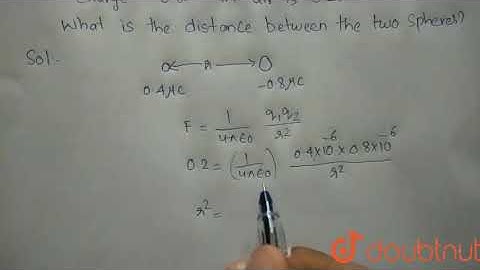 What is the distance between the two spheres?
Sol:-
r
0.4μC -0.8μC
F = 1/4πε0 q1q2/r²
0.2 = (1/4πε0) 0.4×10⁻⁶×0.8×10⁻⁶/r²
r² =
doubtnut